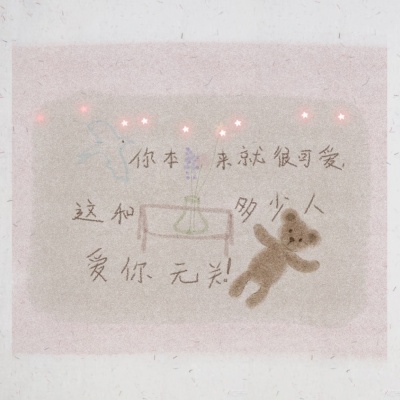 你本来就很可爱，
这和多少人
爱你无关!